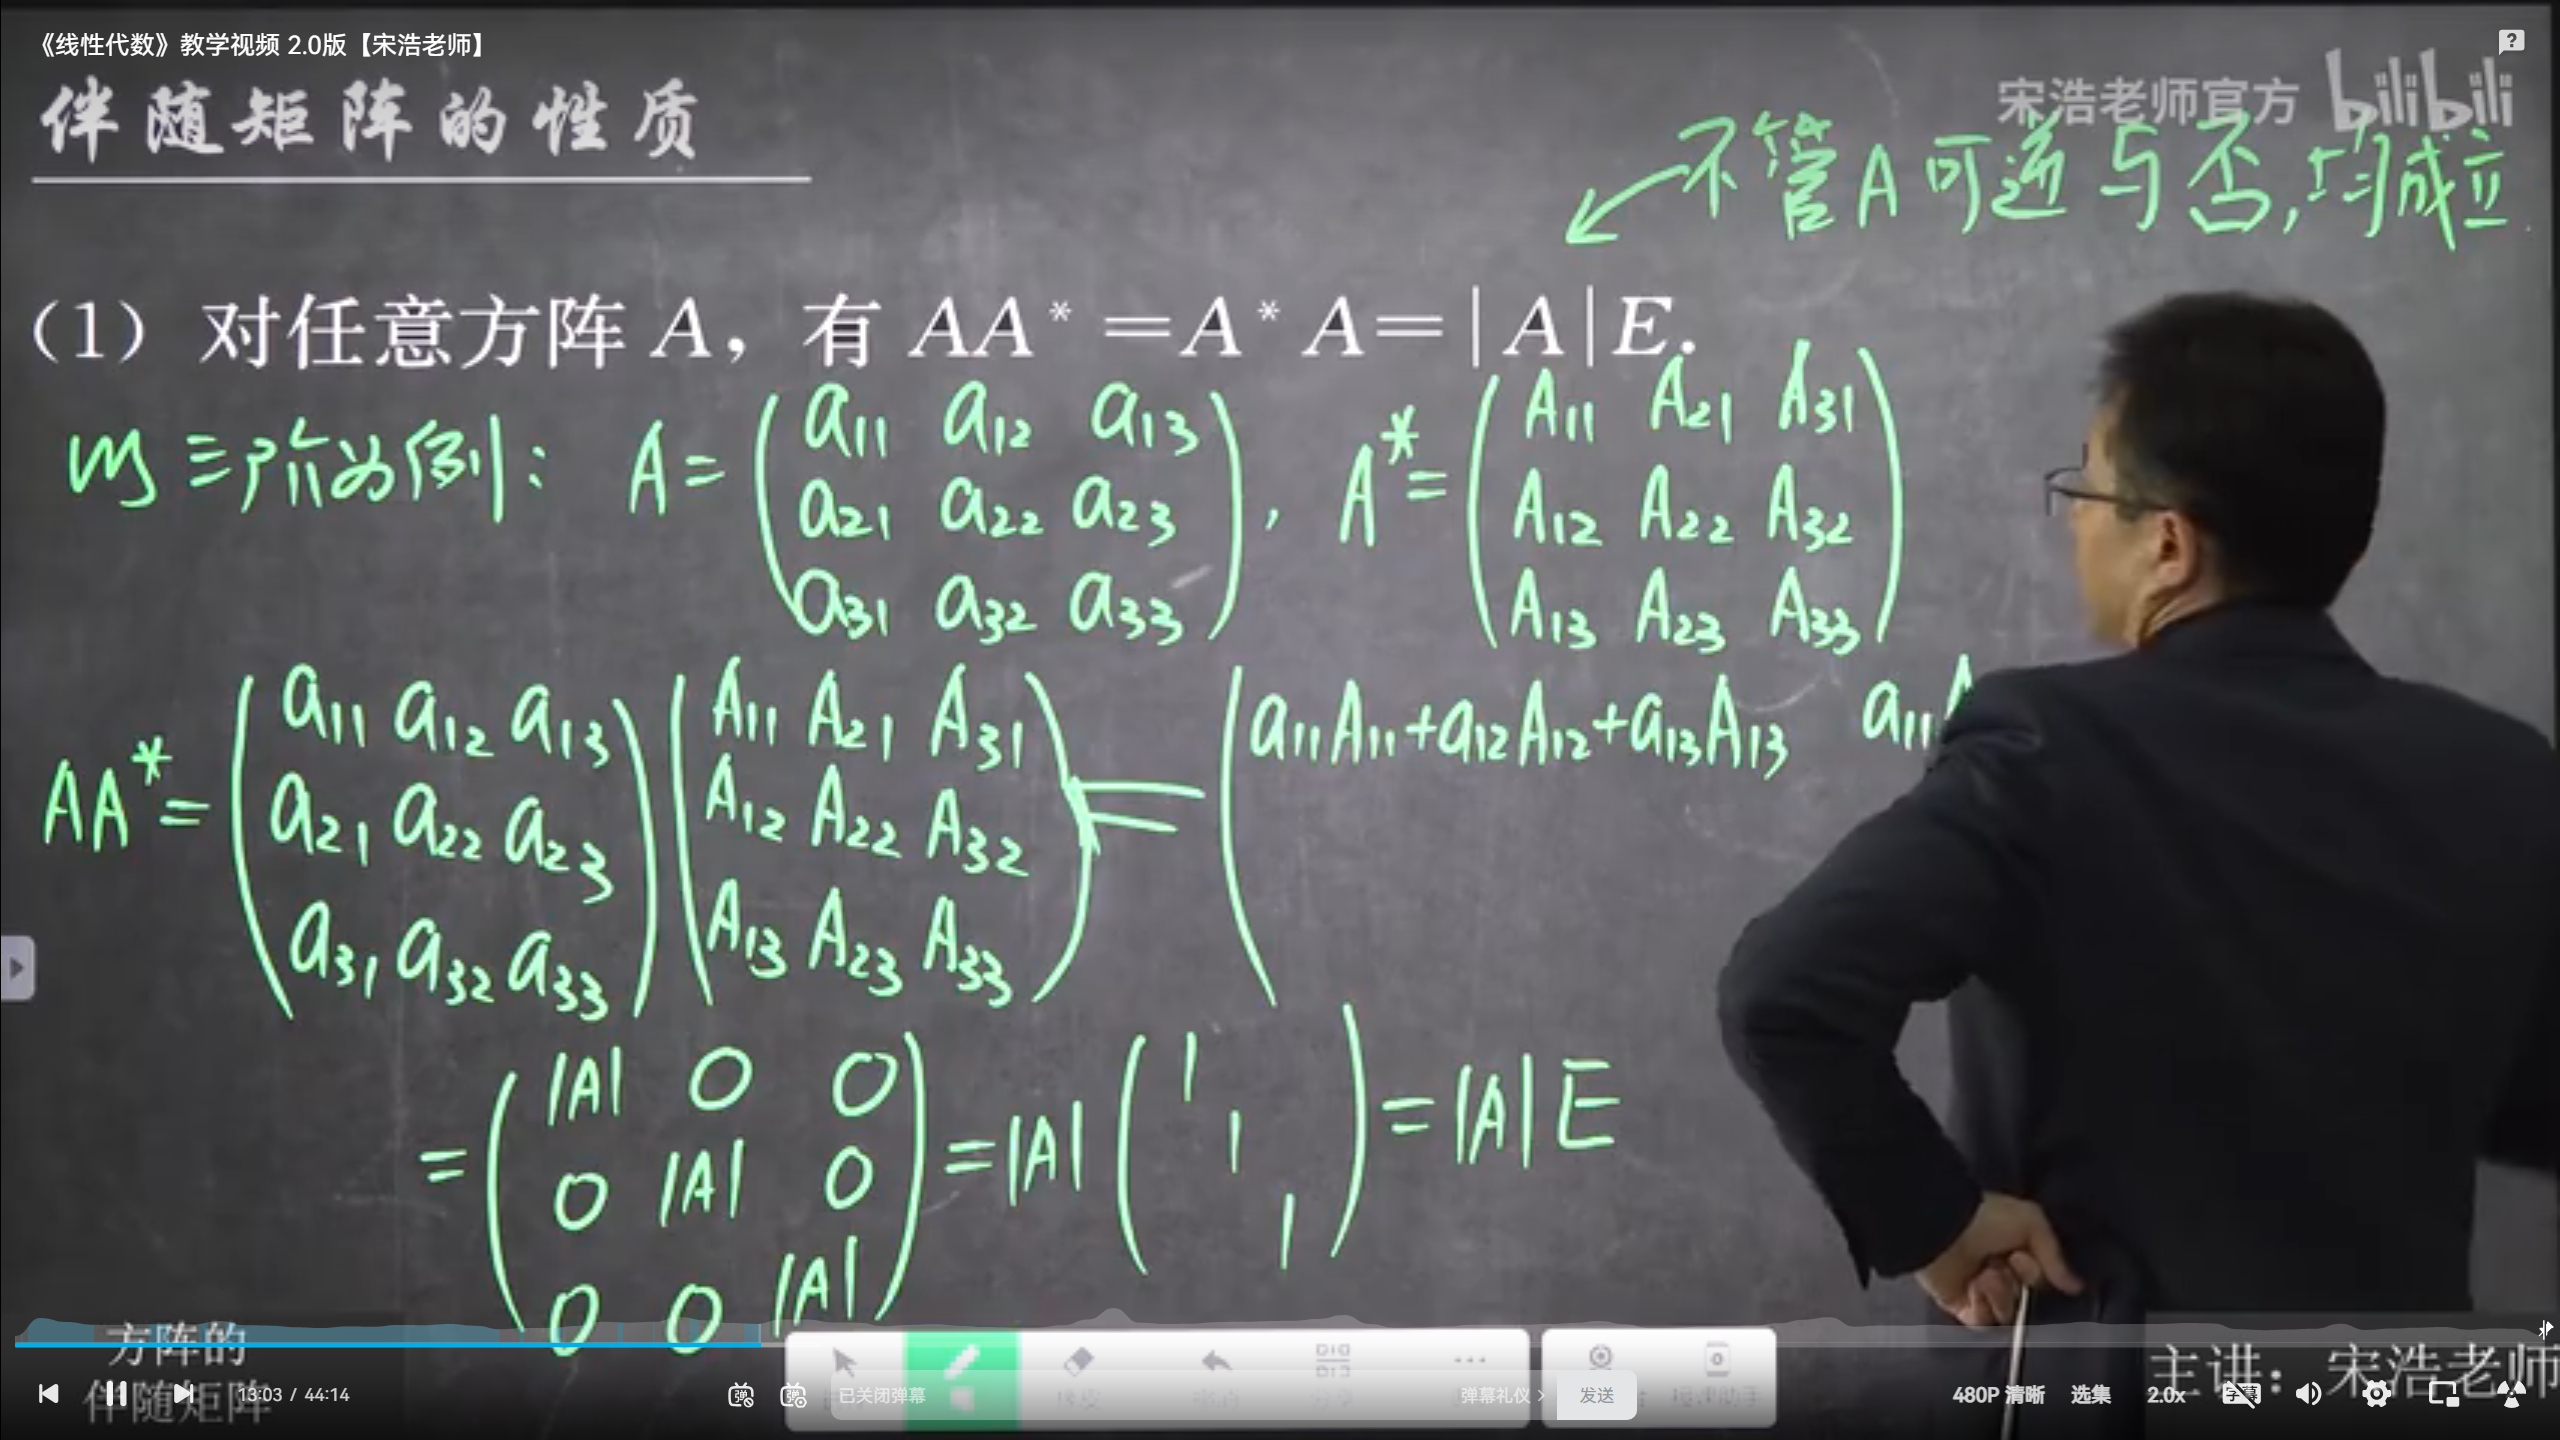 《线性代数》教学视频 2.0版【宋浩老师】
伴随矩阵的性质
宋浩老师官方 bilibili
不管A可逆与否,均成立.
(1) 对任意方阵 A，有 AA* =A* A=|A|E.
以三阶为例: A= (a11 a12 a13
a21 a22 a23
a31 a32 a33) , A*= (A11 A21 A31
A12 A22 A32
A13 A23 A33)
AA*= (a11 a12 a13
a21 a22 a23
a31 a32 a33) (A11 A21 A31
A12 A22 A32
A13 A23 A33) = (a11A11+a12A12+a13A13 a11
= (|A| 0 0
0 |A| 0
0 0 |A|) =|A| (1
1
1) =|A|E
方阵的
伴随矩阵
主讲：宋浩老师
13:03 / 44:14
已关闭弹幕
弹幕礼仪
发送
480P 清晰
选集
2.0x
字幕